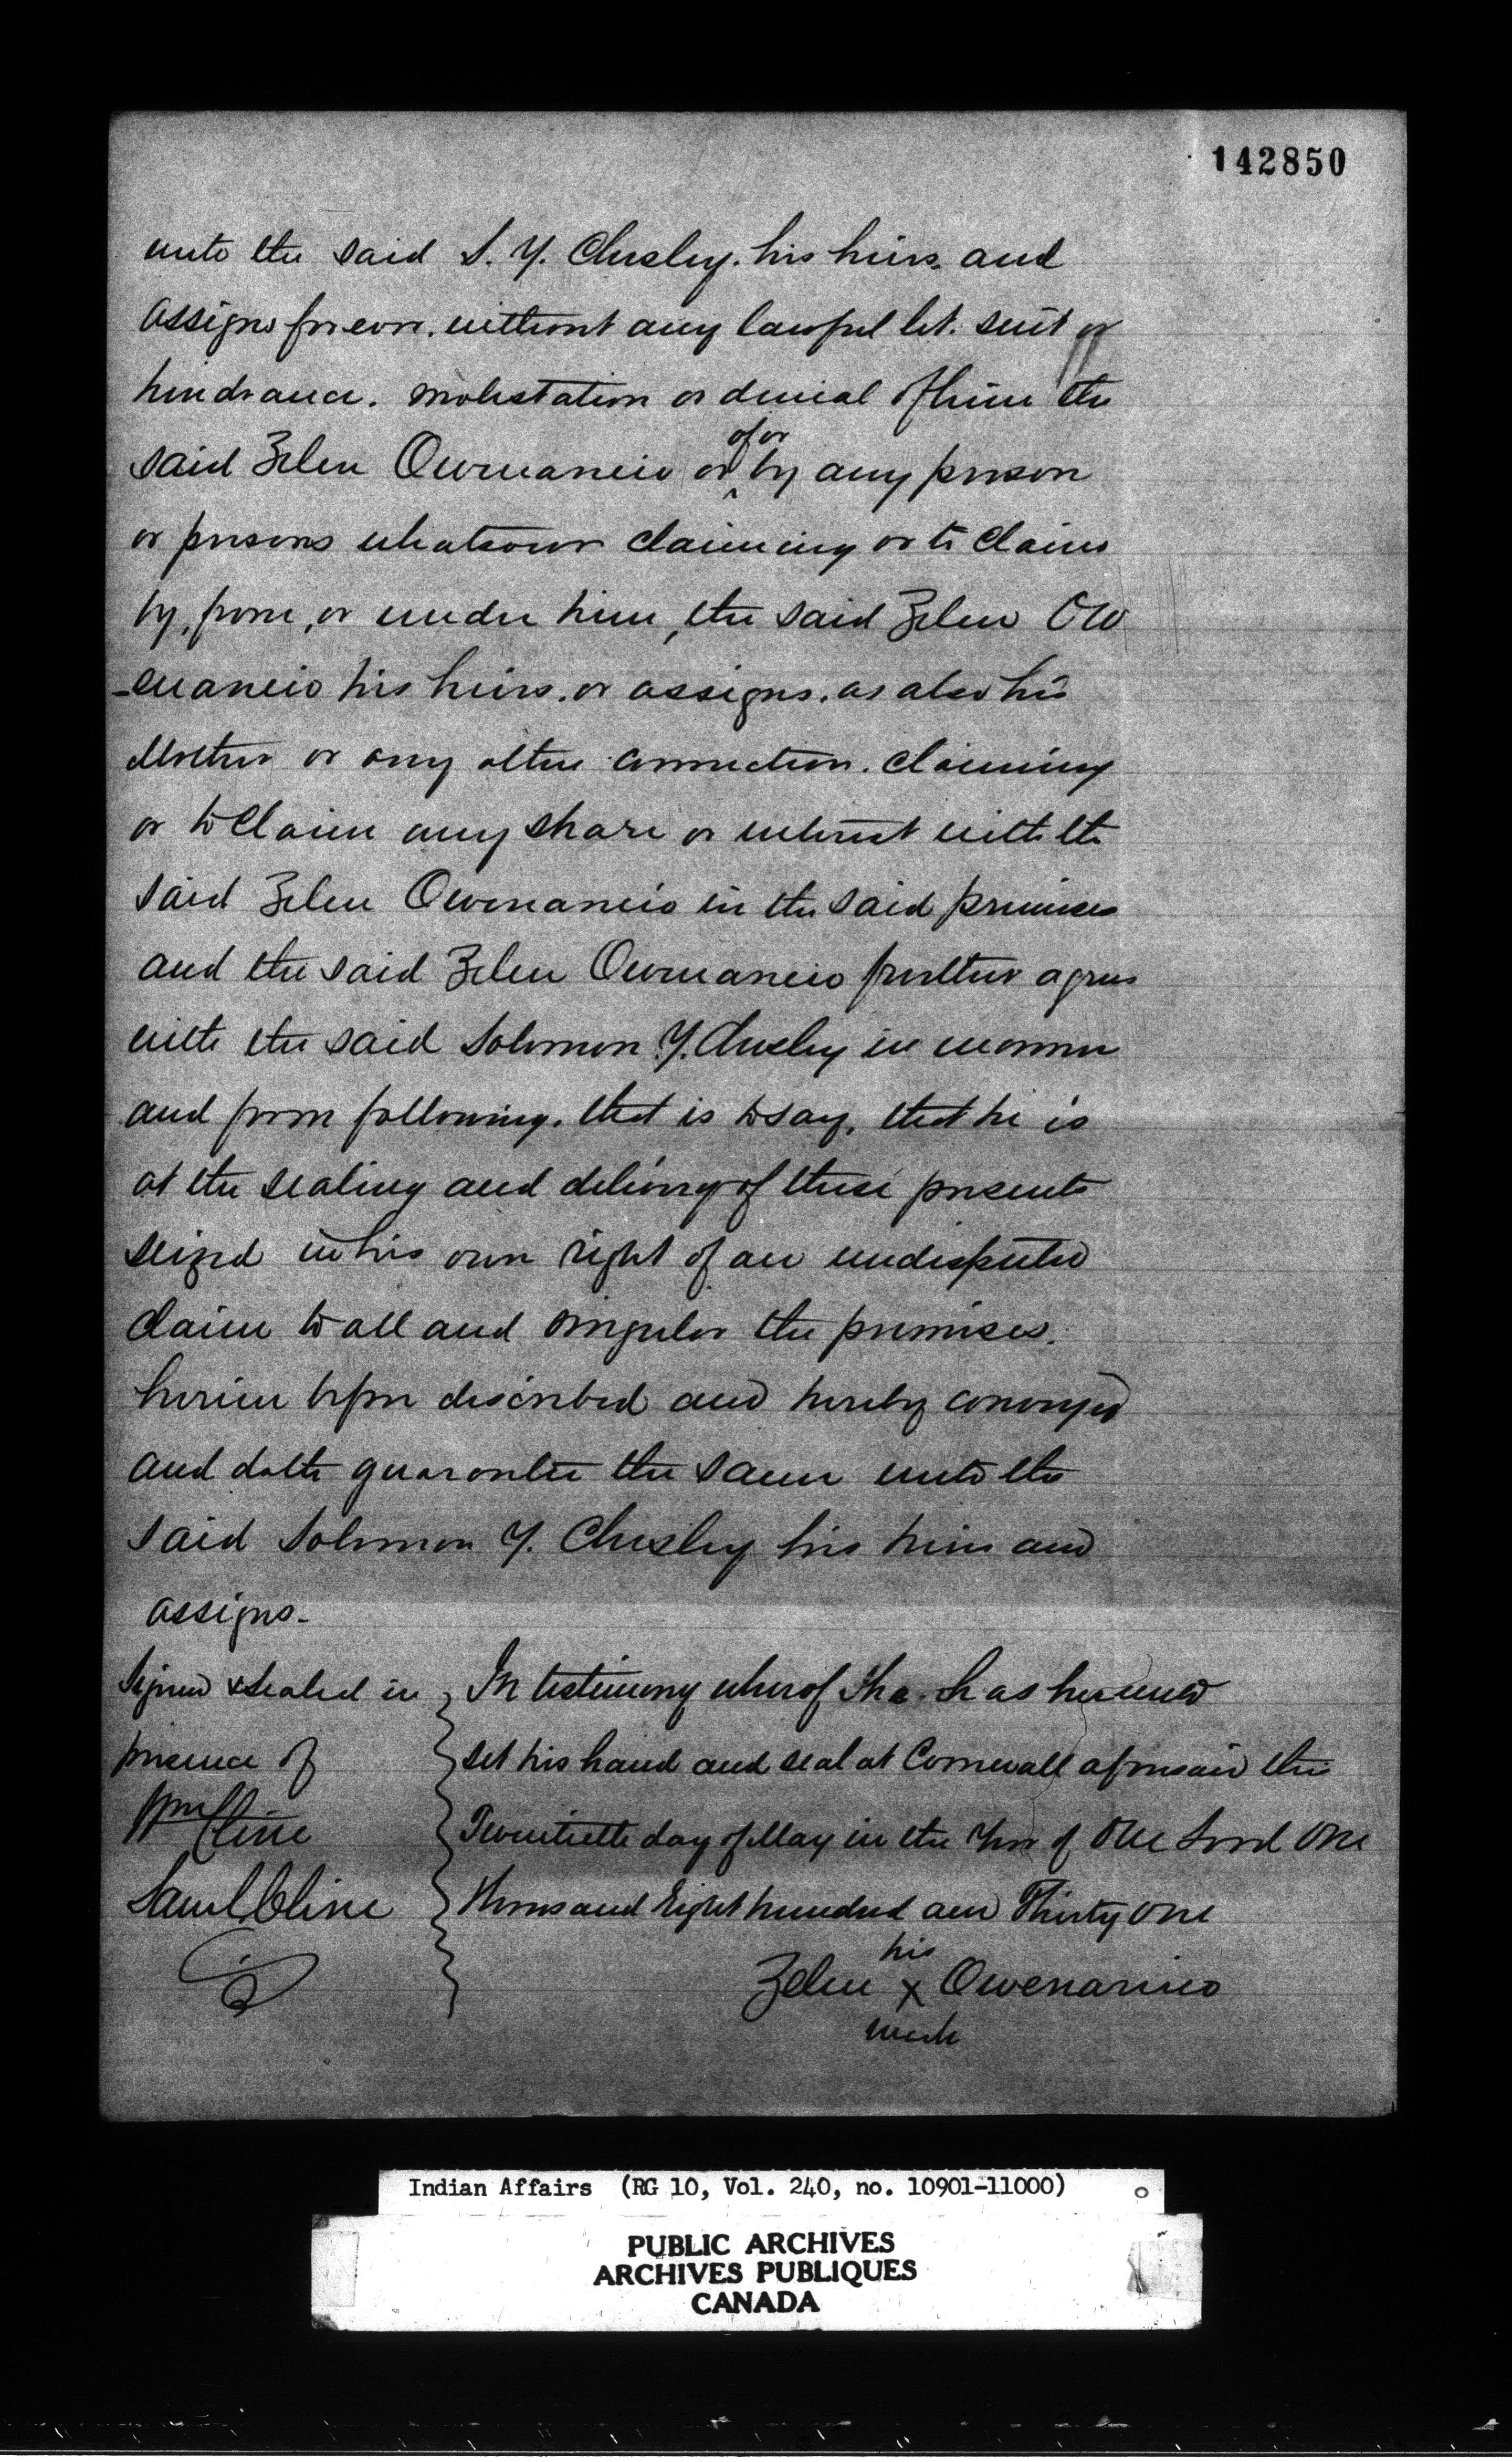 142850
unto the said S. Y. Chesley. his heirs. and
assigns forever. without any lawful let. suit or
hindrance. molestation or denial of him the
said Zelen Owenaneio or of or by any person
or persons whatsoever claiming or to claim
by, from, or under him, the said Zelen Ow
-enaneio his heirs. or assigns. as also his
Mother or any other connection. claiming
or to claim any share or interest with the
said Zelen Owenaneio in the said premises
and the said Zelen Owenaneio further agrees
with the said Solomon Y. Chesley in manner
and form following. that is to say. that he is
at the sealing and delivery of these presents
seized in his own right of an undisputed
claim to all and singular the premises.
herein before described and hereby conveyed
and doth guarantee the same unto the
said Solomon Y. Chesley his heirs and
assigns-
Signed & sealed in
presence of
Wm Cline
Saml. Cline
In testimony whereof he has hereunto
set his hand and seal at Cornwall aforesaid this
Twentieth day of May in the Year of Our Lord One
thousand Eight hundred and Thirty One
his
Zelen x Owenaneio
mark
Indian Affairs (RG 10, Vol. 240, no. 10901-11000)
PUBLIC ARCHIVES
ARCHIVES PUBLIQUES
CANADA